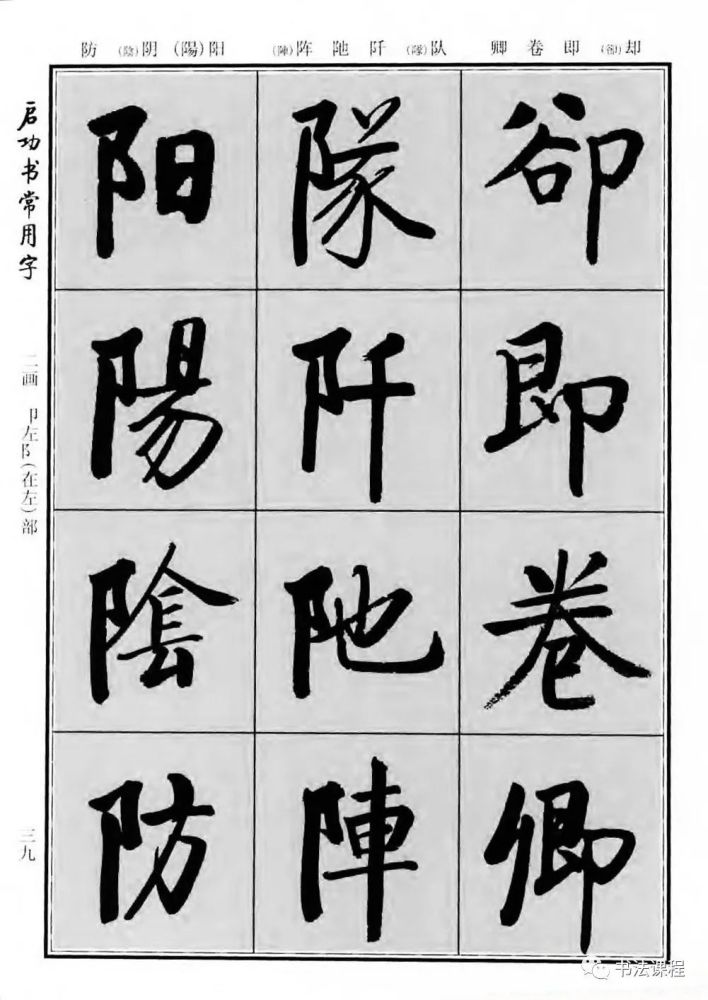 却(卻)即卷卿
队(隊)阡阤阵(陣)
阳(陽)阴(陰)防
卻即卷卿
隊阡阤陣
阳陽陰防
启功书常用字
二画 卩左阝(在左)部
三九
书法课程